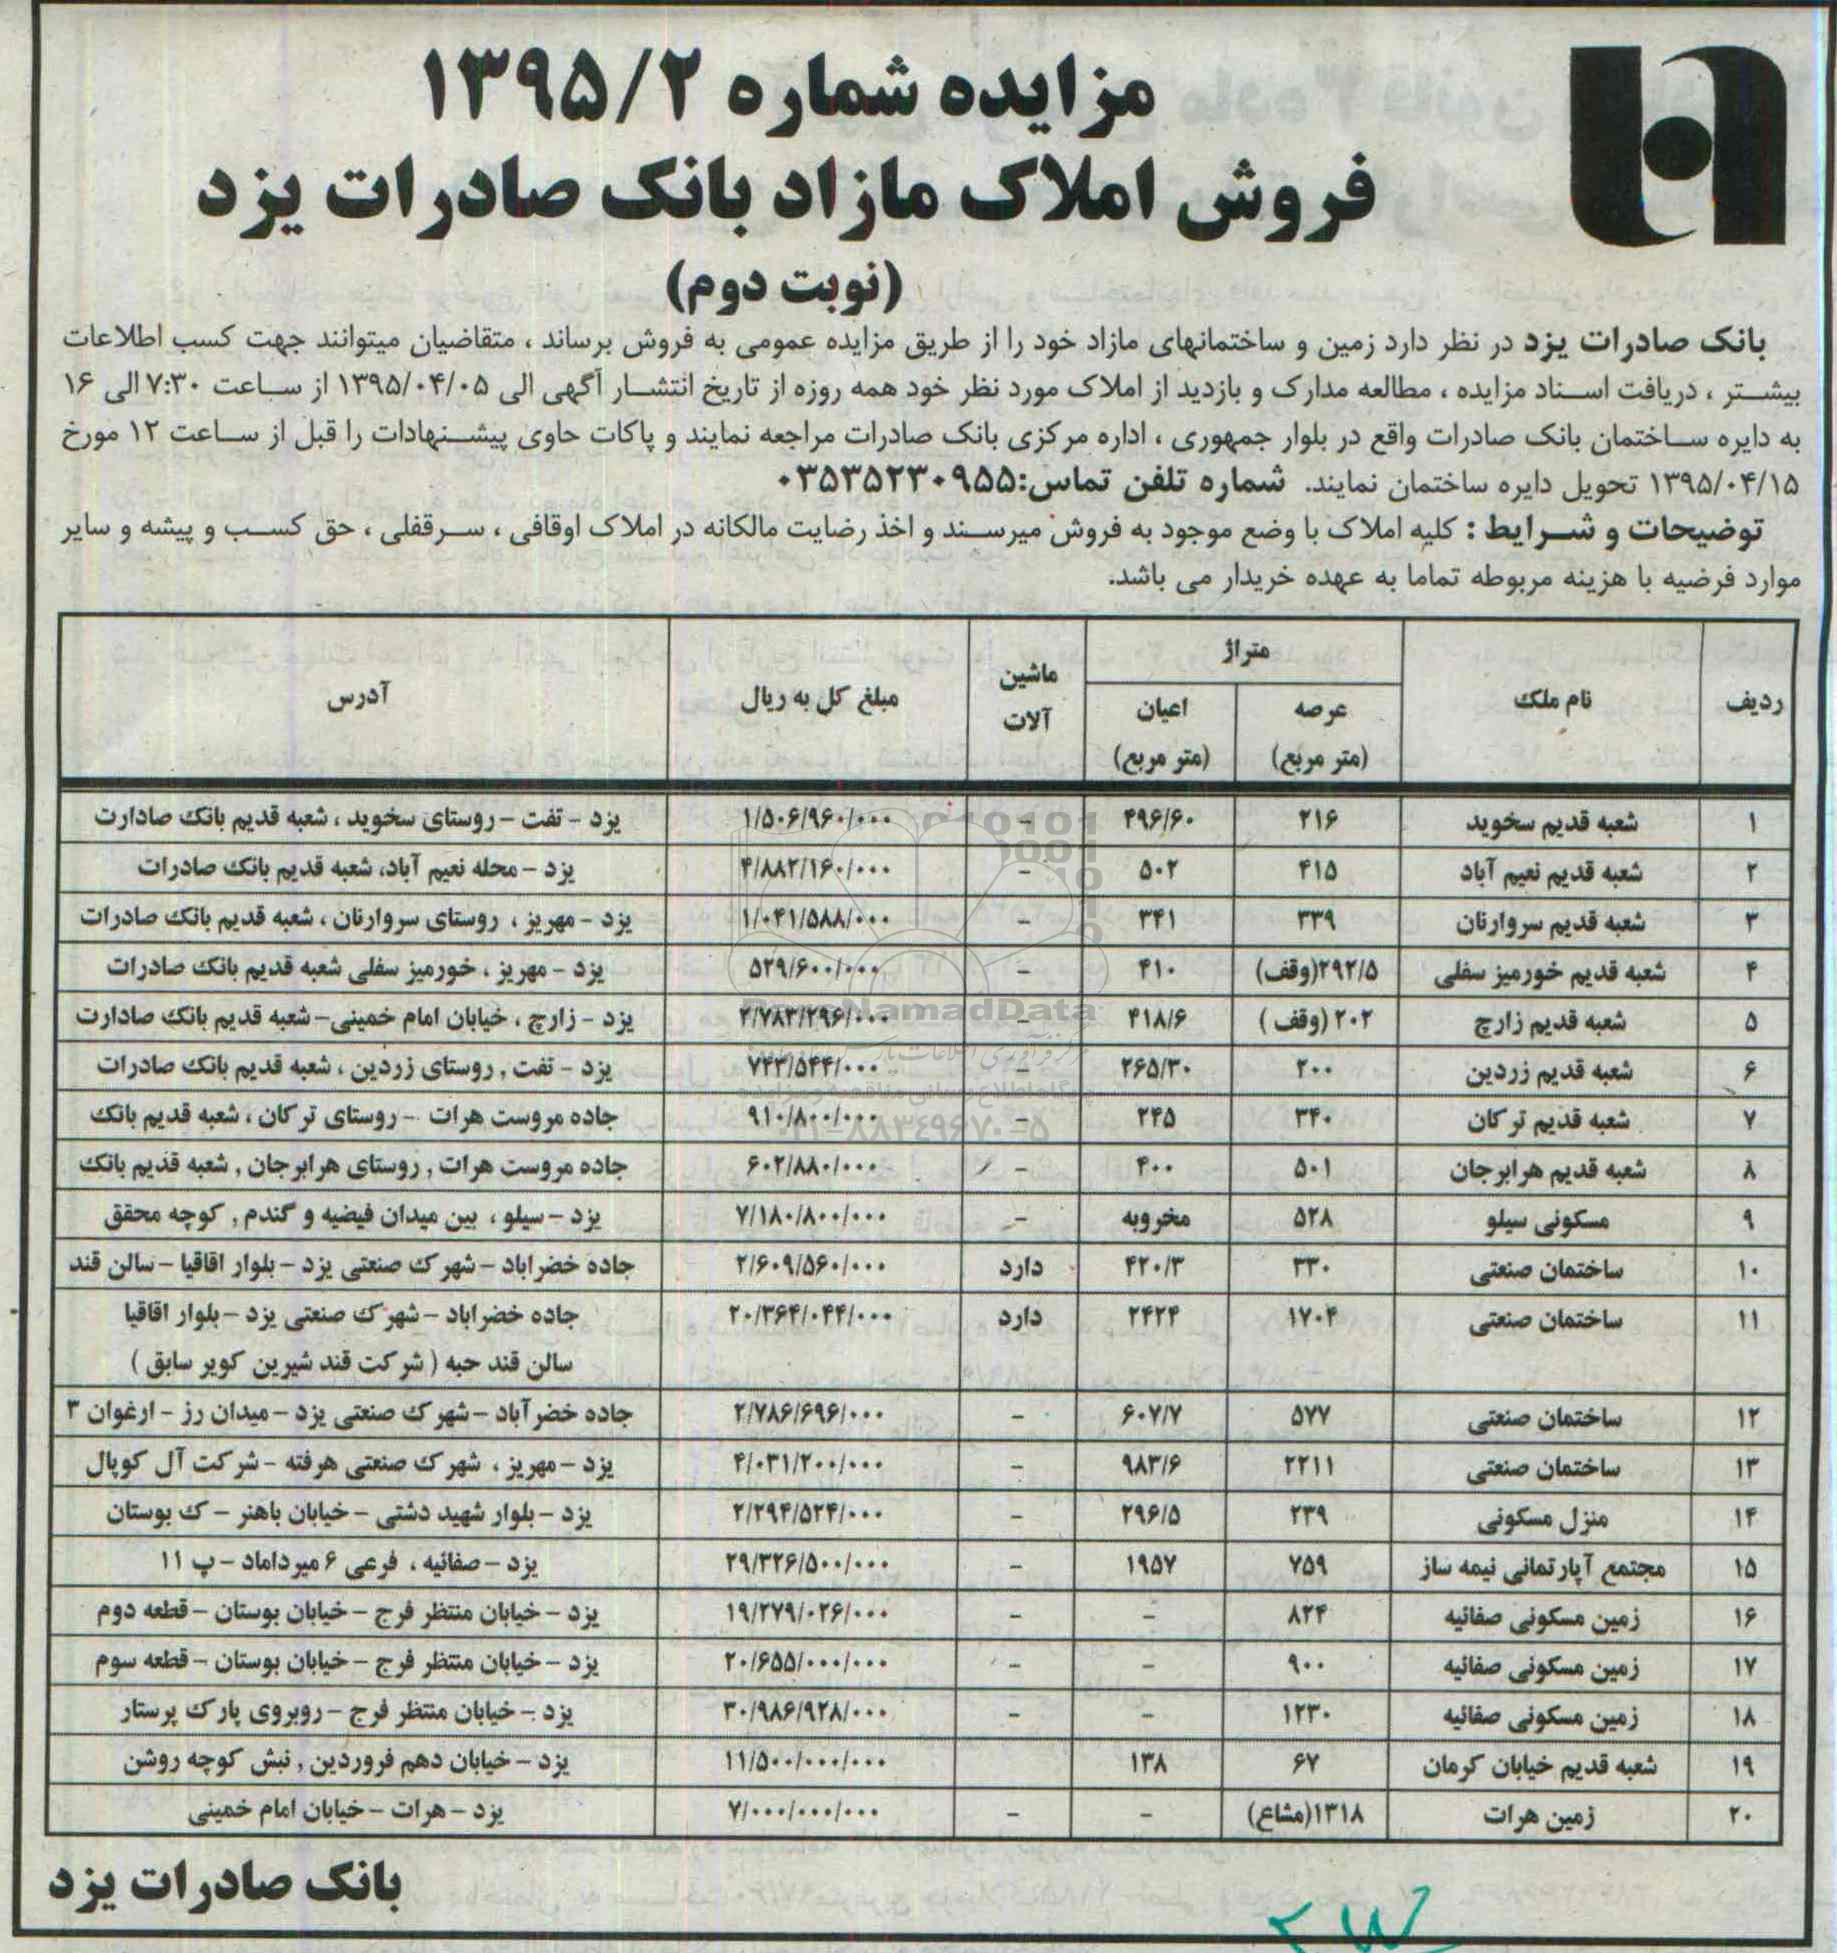 مزایده شماره ۱۳۹۵/۲
فروش املاک مازاد بانک صادرات یزد
(نوبت دوم)
بانک صادرات یزد در نظر دارد زمین و ساختمانهای مازاد خود را از طریق مزایده عمومی به فروش برساند ، متقاضیان میتوانند جهت کسب اطلاعات
بیشتر ، دریافت اسناد مزایده ، مطالعه مدارک و بازدید از املاک مورد نظر خود همه روزه از تاریخ انتشار آگهی الی ۱۳۹۵/۰۴/۰۵ از ساعت ۷:۳۰ الی ۱۶
به دایره ساختمان بانک صادرات واقع در بلوار جمهوری ، اداره مرکزی بانک صادرات مراجعه نمایند و پاکات حاوی پیشنهادات را قبل از ساعت ۱۲ مورخ
۱۳۹۵/۰۴/۱۵ تحویل دایره ساختمان نمایند. شماره تلفن تماس:۰۳۵۳۵۲۳۰۹۵۵
توضیحات و شرایط : کلیه املاک با وضع موجود به فروش میرسند و اخذ رضایت مالکانه در املاک اوقافی ، سرقفلی ، حق کسب و پیشه و سایر
موارد فرضیه با هزینه مربوطه تماما به عهده خریدار می باشد.
ردیف نام ملک متراژ عرصه (متر مربع) اعیان (متر مربع) ماشین آلات مبلغ کل به ریال آدرس
۱ شعبه قدیم سخوید ۲۱۶ ۴۹۶/۶۰ - ۱/۵۰۶/۹۶۰/۰۰۰ یزد - تفت - روستای سخوید ، شعبه قدیم بانک صادارت
۲ شعبه قدیم نعیم آباد ۴۱۵ ۵۰۲ - ۴/۸۸۲/۱۶۰/۰۰۰ یزد - محله نعیم آباد، شعبه قدیم بانک صادرات
۳ شعبه قدیم سروارنان ۳۳۹ ۳۴۱ - ۱/۰۴۱/۵۸۸/۰۰۰ یزد - مهریز ، روستای سروارنان ، شعبه قدیم بانک صادرات
۴ شعبه قدیم خورمیز سفلی ۲۹۲/۵(وقف) ۴۱۰ - ۵۲۹/۶۰۰/۰۰۰ یزد - مهریز ، خورمیز سفلی شعبه قدیم بانک صادرات
۵ شعبه قدیم زارچ ۲۰۲ (وقف ) ۴۱۸/۶ - ۲/۷۸۳/۲۹۶/۰۰۰ یزد - زارچ ، خیابان امام خمینی- شعبه قدیم بانک صادارت
۶ شعبه قدیم زردین ۲۰۰ ۲۶۵/۳۰ - ۷۴۳/۵۴۴/۰۰۰ یزد - تفت , روستای زردین ، شعبه قدیم بانک صادرات
۷ شعبه قدیم ترکان ۳۴۰ ۲۴۵ - ۹۱۰/۸۰۰/۰۰۰ جاده مروست هرات - روستای ترکان ، شعبه قدیم بانک
۸ شعبه قدیم هرابرجان ۵۰۱ ۴۰۰ - ۶۰۲/۸۸۰/۰۰۰ جاده مروست هرات , روستای هرابرجان , شعبه قدیم بانک
۹ مسکونی سیلو ۵۲۸ مخروبه - ۷/۱۸۰/۸۰۰/۰۰۰ یزد - سیلو ، بین میدان فیضیه و گندم , کوچه محقق
۱۰ ساختمان صنعتی ۳۳۰ ۴۲۰/۳ دارد ۲/۶۰۹/۵۶۰/۰۰۰ جاده خضراباد - شهرک صنعتی یزد - بلوار اقاقیا - سالن قند
۱۱ ساختمان صنعتی ۱۷۰۴ ۲۴۲۴ دارد ۲۰/۳۶۴/۰۴۴/۰۰۰ جاده خضراباد - شهرک صنعتی یزد - بلوار اقاقیا
سالن قند حبه ( شرکت قند شیرین کویر سابق )
۱۲ ساختمان صنعتی ۵۷۷ ۶۰۷/۷ - ۲/۷۸۶/۶۹۶/۰۰۰ جاده خضرآباد - شهرک صنعتی یزد - میدان رز - ارغوان ۳
۱۳ ساختمان صنعتی ۲۲۱۱ ۹۸۳/۶ - ۴/۰۳۱/۲۰۰/۰۰۰ یزد - مهریز ، شهرک صنعتی هرفته - شرکت آل کوپال
۱۴ منزل مسکونی ۲۳۹ ۲۹۶/۵ - ۲/۲۹۴/۵۲۴/۰۰۰ یزد - بلوار شهید دشتی - خیابان باهنر - ک بوستان
۱۵ مجتمع آپارتمانی نیمه ساز ۷۵۹ ۱۹۵۷ - ۲۹/۳۲۶/۵۰۰/۰۰۰ یزد - صفائیه ، فرعی ۶ میرداماد - پ ۱۱
۱۶ زمین مسکونی صفائیه ۸۲۴ - - ۱۹/۲۷۹/۰۲۶/۰۰۰ یزد - خیابان منتظر فرج - خیابان بوستان - قطعه دوم
۱۷ زمین مسکونی صفائیه ۹۰۰ - - ۲۰/۶۵۵/۰۰۰/۰۰۰ یزد - خیابان منتظر فرج - خیابان بوستان - قطعه سوم
۱۸ زمین مسکونی صفائیه ۱۲۳۰ - - ۳۰/۹۸۶/۹۲۸/۰۰۰ یزد - خیابان منتظر فرج - روبروی پارک پرستار
۱۹ شعبه قدیم خیابان کرمان ۶۷ ۱۳۸ ۱۱/۵۰۰/۰۰۰/۰۰۰ یزد - خیابان دهم فروردین , نبش کوچه روشن
۲۰ زمین هرات ۱۳۱۸(مشاع) - - ۷/۰۰۰/۰۰۰/۰۰۰ یزد - هرات - خیابان امام خمینی
بانک صادرات یزد
ParsNamadData
۰۲۱-۸۸۳۴۹۶۷۰-۵